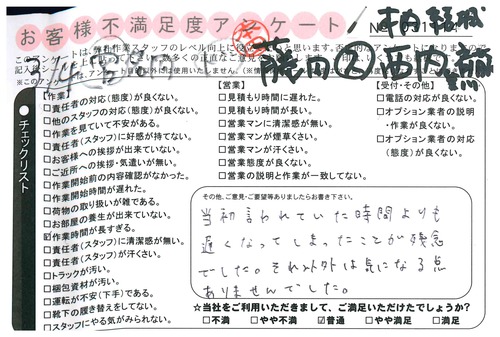 お客様不満足度アンケート
チェックリスト
【作業】
□責任者の対応(態度)が良くない。
□他のスタッフの対応(態度)が良くない。
□作業を見ていて不安がある。
□責任者(スタッフ)に好感が持てない。
□お客様への挨拶が出来ていない。
□ご近所への挨拶・気遣いが無い。
□作業開始前の内容確認がなかった。
□作業開始時間が遅れた。
□荷物の取り扱いが雑である。
□お部屋の養生が出来ていない。
☑作業時間が長すぎる。
□責任者(スタッフ)に清潔感が無い。
□責任者(スタッフ)が汗くさい。
□トラックが汚い。
□梱包資材が汚い。
□運転が不安(下手)である。
□靴下の履き替えをしてない。
□スタッフにやる気がみられない。
【営業】
□見積もり時間に遅れた。
□見積もり時間が長い。
□営業マンに清潔感が無い。
□営業マンが煙草くさい。
□営業マンが汗くさい。
□営業態度が良くない。
□営業の説明と作業が一致してない。
【受付・その他】
□電話の対応が良くない。
□オプション業者の説明
・作業が良くない。
□オプション業者の対応
(態度)が良くない。
その他、ご意見・ご要望等ありましたらお書き下さい。
当初言われていた時間よりも
遅くなってしまったことが残念
でした。それ以外は気になる点
ありませんでした。
☆当社をご利用いただきまして、ご満足いただけたでしょうか?
□不満 □やや不満 ☑普通 □やや満足 □満足